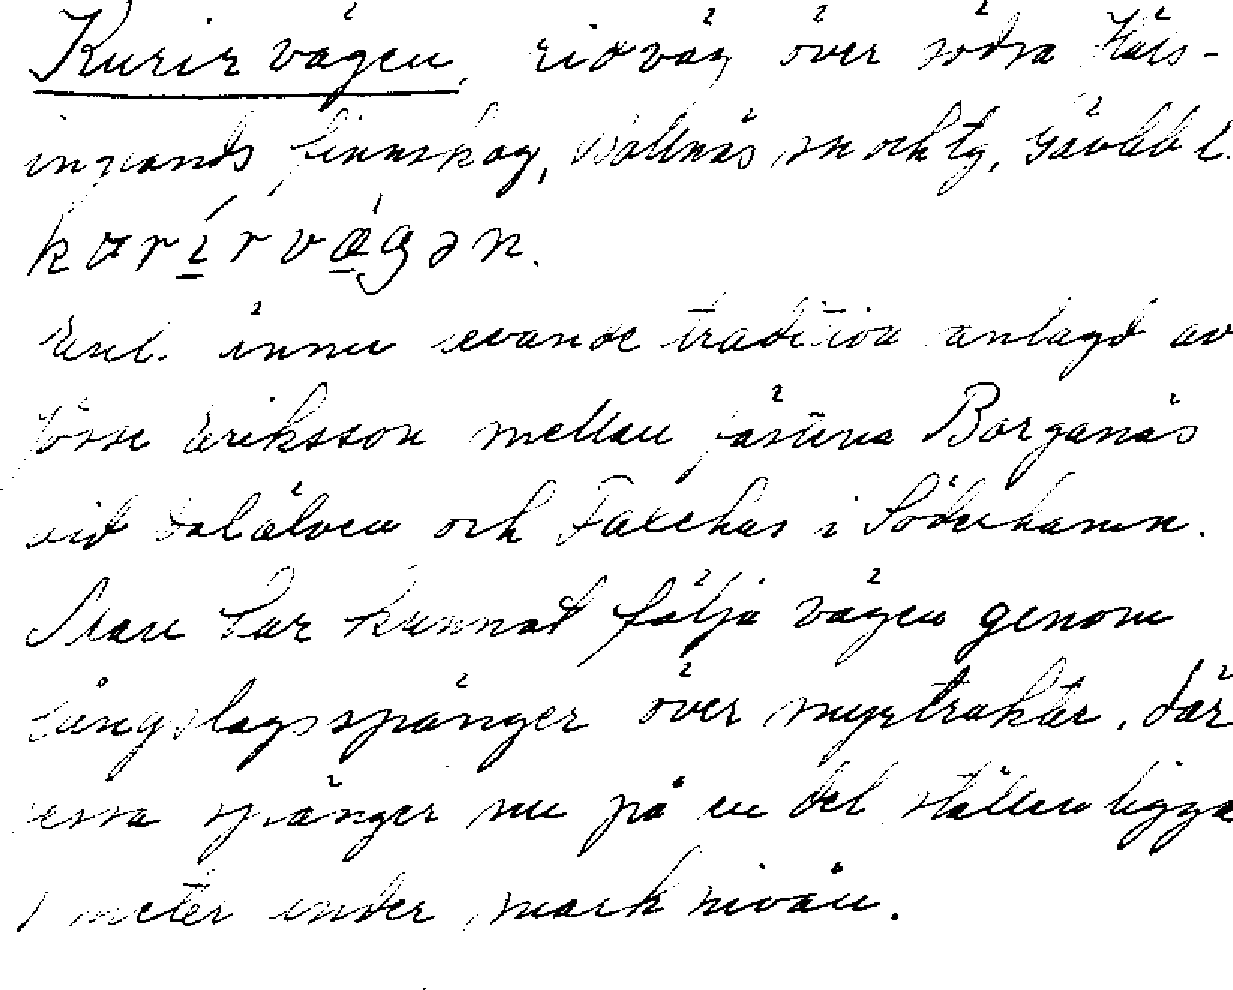 Kurirvägen, ridväg över södra Häls-
inglands finnskog, Vallnäs sn och tg, Gävlb l.
kʉrírvä́gən.
Enl. ännu levande tradition anlagd av
Jösse Eriksson mellan fästena Borganäs
vid Dalälven och Faxehus i Söderhamn.
Man har kunnat följa vägen genom
långslagsspänger över myrtrakter, där
dessa spänger nu på en del ställen ligga
1 meter under marknivån.